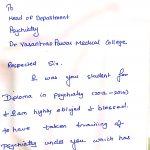 To
Head of Department
Psychiatry
Dr Vasantrao Pawar Medical College.
Respected Sir.
I was your student for
Diploma in Psychiatry (2012-2014)
I am highly obliged & blessed
to have taken training of
Psychiatry under you which has